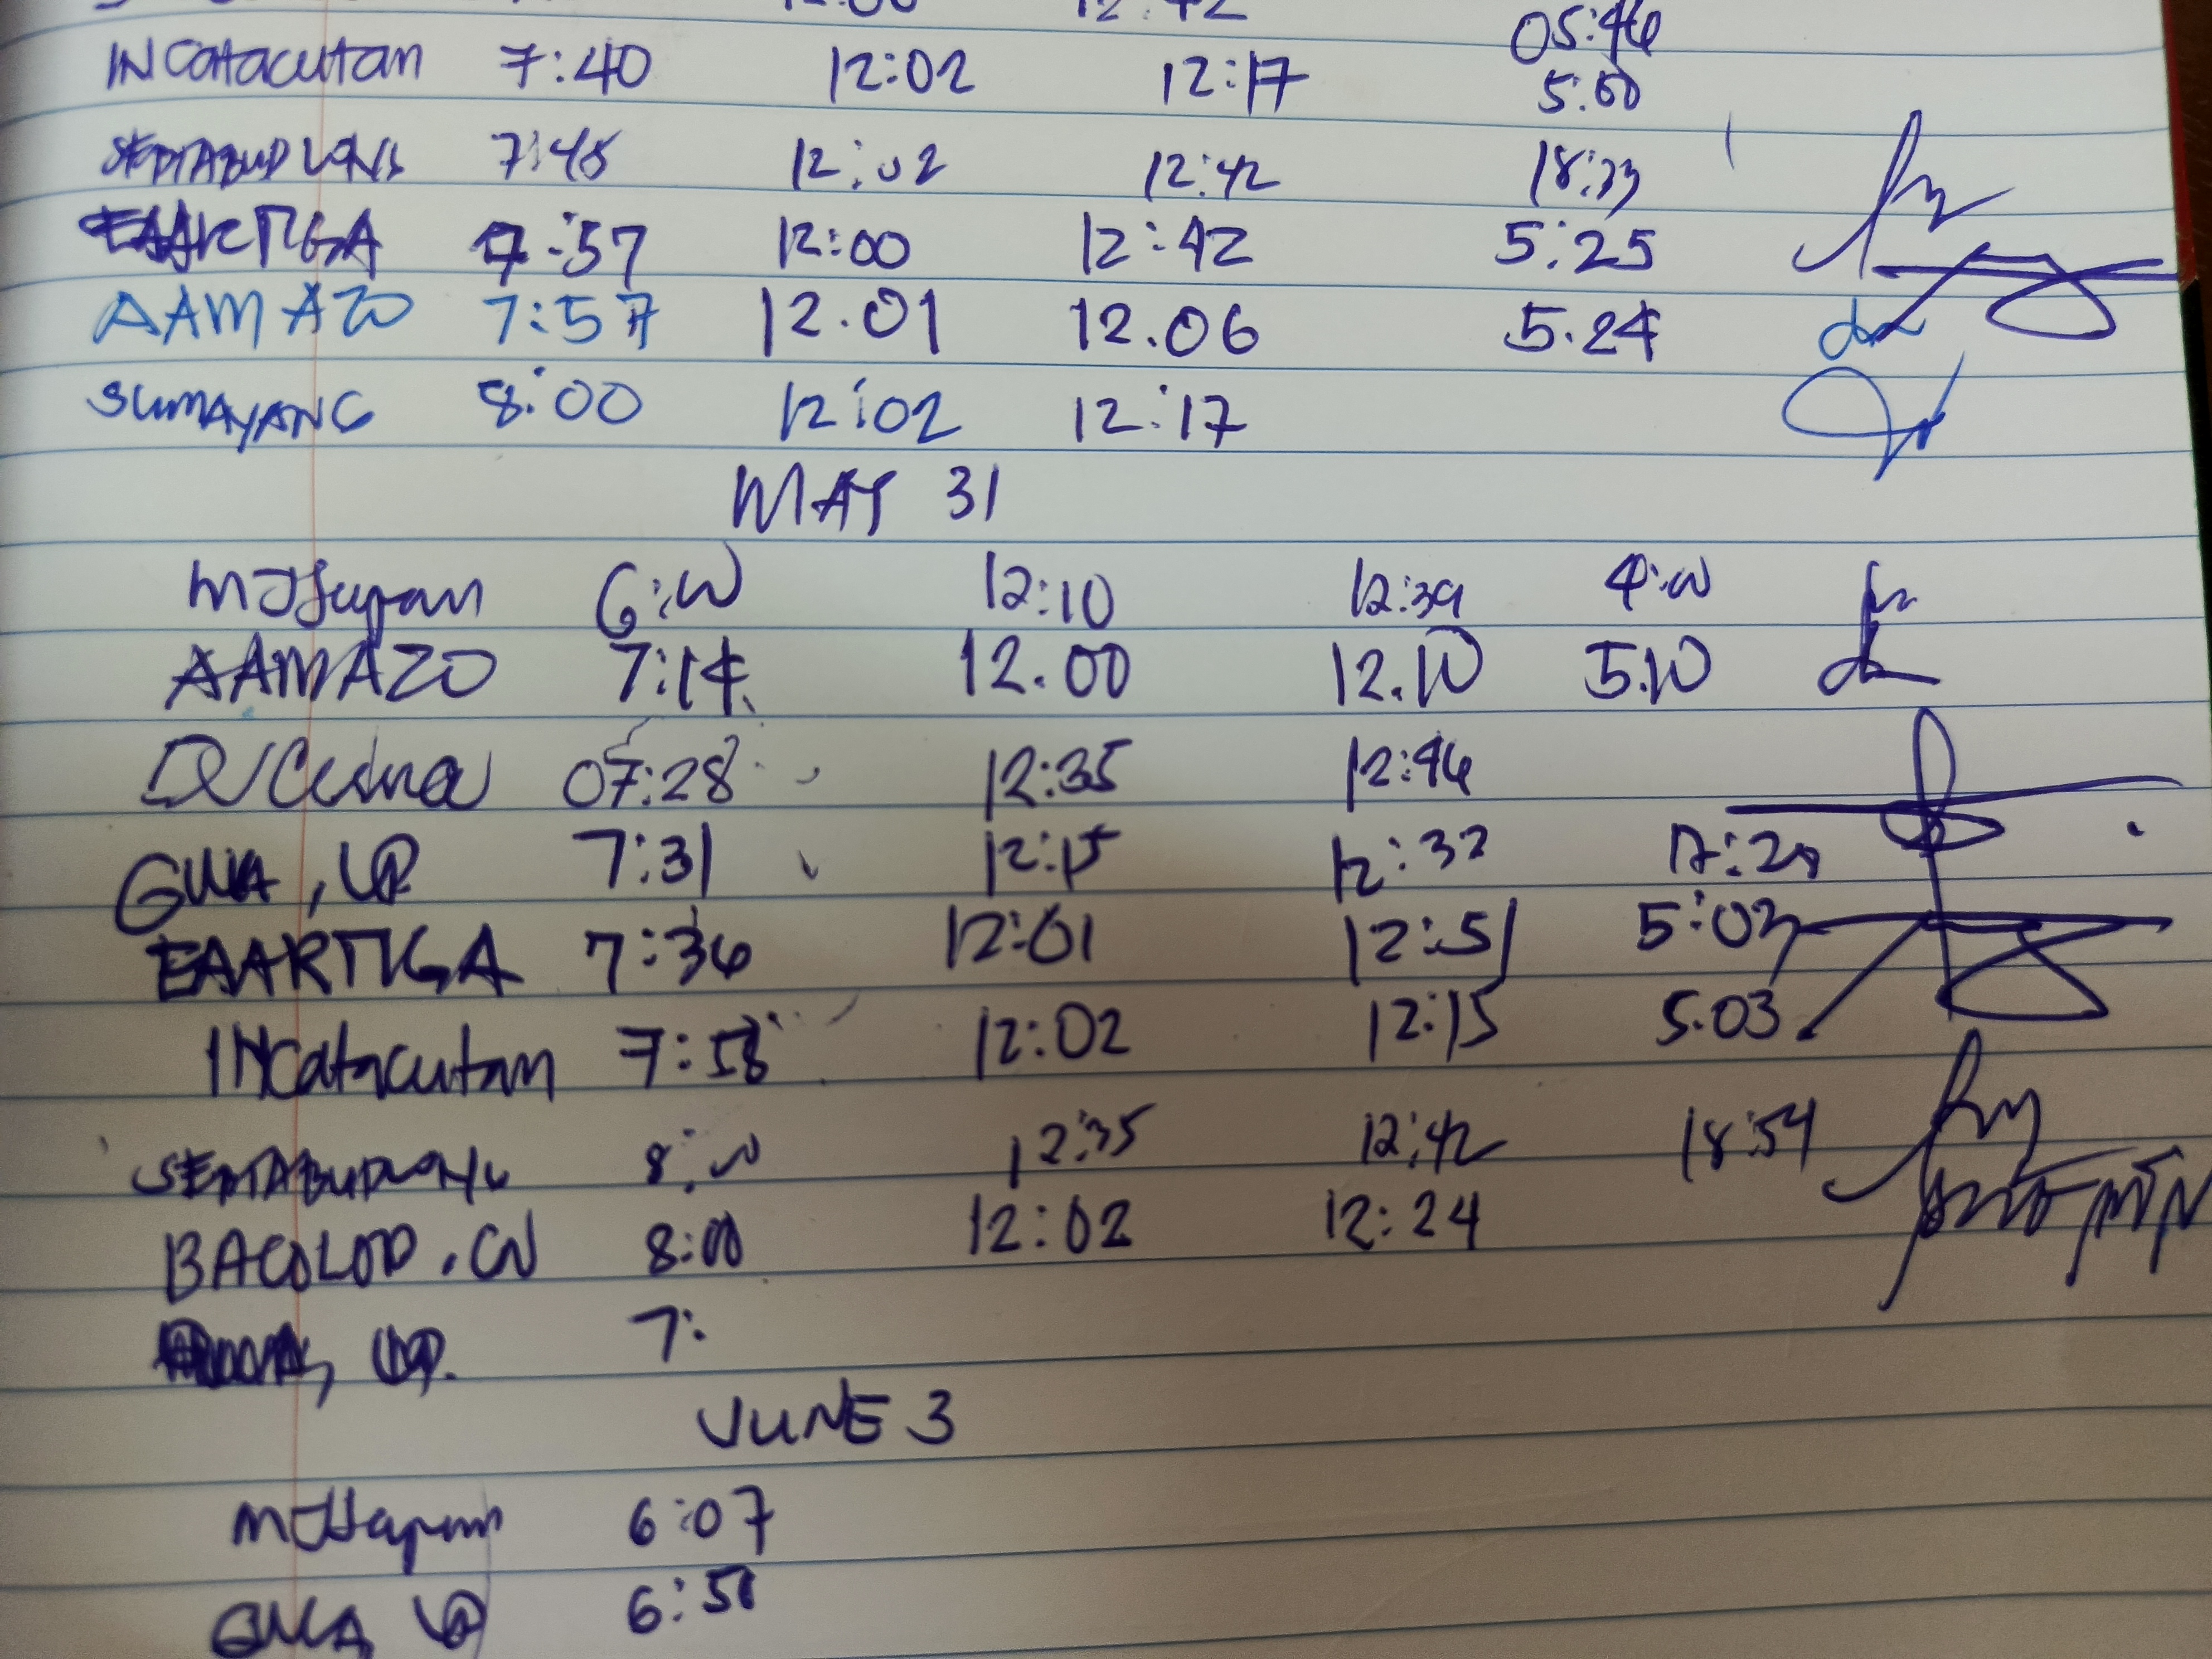 12:00 12:42 05:46
INCatacutan 7:40 12:02 12:17 5:00
7:45 12:02 12:42 18:33
EAARTIGA 7:57 12:00 12:42 5:25
AAMAZO 7:57 12.01 12.06 5.24
SUMAYANG 8:00 12:02 12:17
MAY 31
6:00 12:10 12:39 4:00
AAMAZO 7:14 12.00 12.10 5.10
07:28 12:35 12:46
7:31 12:15 12:32
EAARTIGA 7:36 12:01 12:51 5:03
INCatacutan 7:58 12:02 12:15 5.03
8:00 12:35 12:42 18:54
BACOLOD, CN 8:00 12:02 12:24
7:
JUNE 3
6:07
6:51